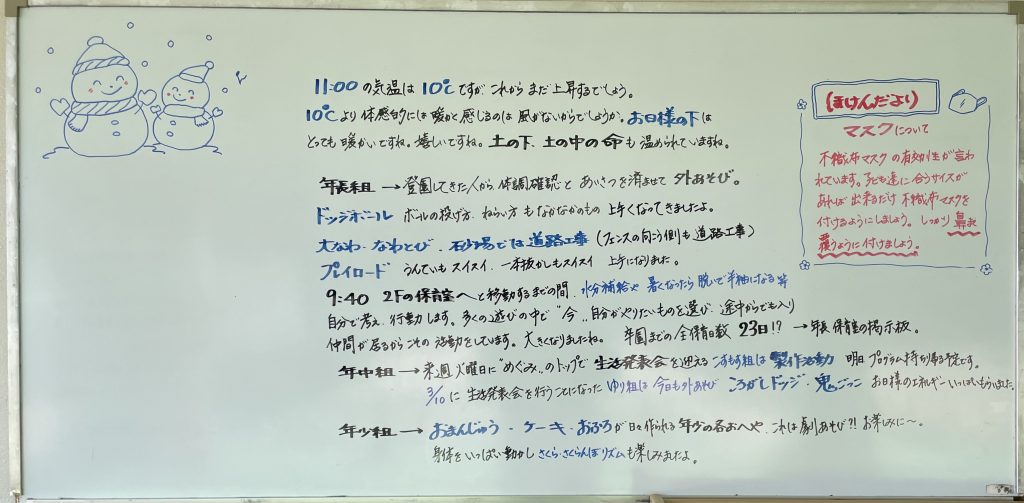 11:00 の気温は 10℃ ですが これから まだ上昇するでしょう。
10℃ より 体感的には 暖かく感じるのは 風がないからでしょうか。お日様の下は
とっても 暖かいですね。嬉しいですね。土の下、土の中の命も 温められていますね。
年長組 → 登園してきた人から 体調確認と あいさつを済ませて 外あそび。
ドッジボール ボールの投げ方、ねらい方 もなかなかのもの 上手くなってきましたよ。
大なわ・なわとび、砂場では 道路工事 (フェンスの向こう側も 道路工事)
プレイロード うんていも スイスイ、一本抜かしもスイスイ 上手になりました。
9:40 2Fの保育室へと移動するまでの間、水分補給や 暑くなったら 脱いで半袖になる等
自分で考え、行動します。多くの遊びの中で "今" 自分がやりたいものを選び、途中からでも入り
仲間が居るからこその 活動をしています。大きくなりましたね。 卒園までの全保育日数 23日!? → 年長保育室の掲示板。
年中組 → 来週 火曜日に "めぐみ" のトップで 生活発表会を迎える こすもす組は 製作活動 明日 プログラム持ち帰る予定です。
3/10 に 生活発表会を行うことになった ゆり組は 今日も外あそび ころがしドッジ・鬼ごっこ お日様のエネルギーいっぱいもらいました。
年少組 → おまんじゅう・ケーキ・おふろ が 日々作られる 年少の各おへや、これは 劇あそび?! お楽しみに〜。
身体を いっぱい動かし さくら・さくらんぼリズムも 楽しみましたよ。
(ほけんだより)
マスクについて
不織布マスク の有効性が言わ
れています。子ども達に合うサイズが
あれば 出来るだけ 不織布マスクを
付けるようにしましょう。しっかり 鼻も
覆うように付けましょう。